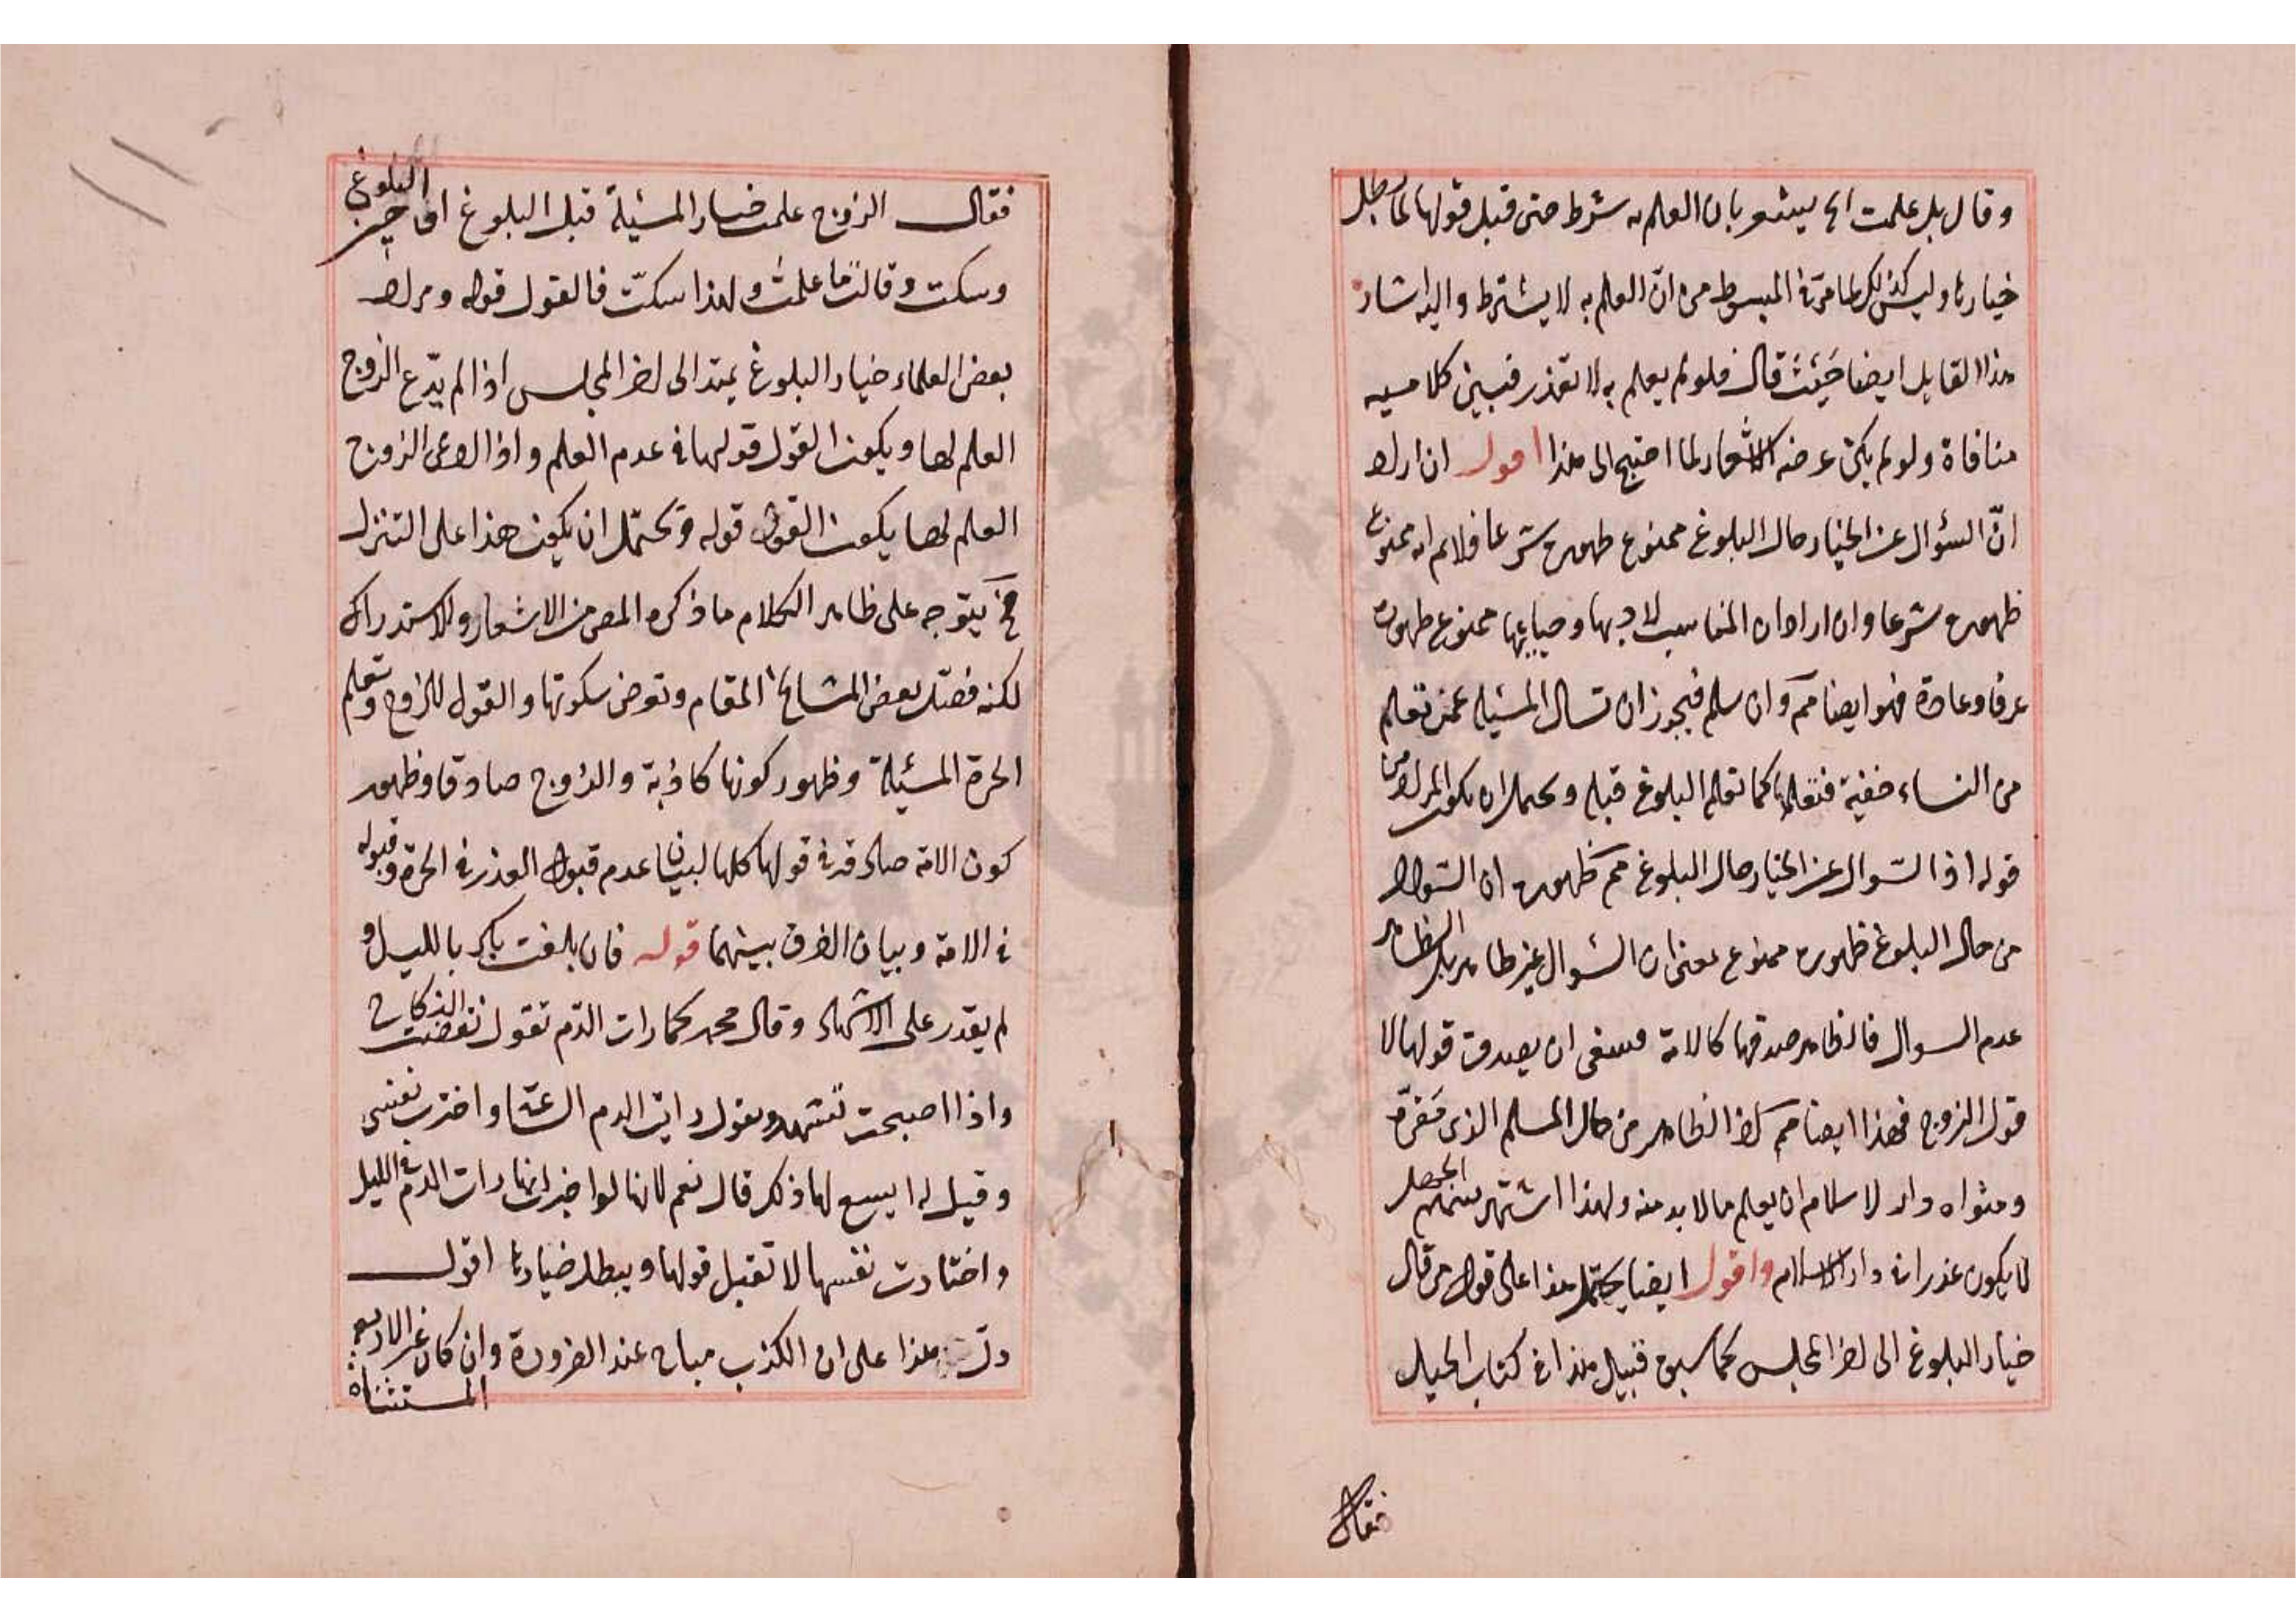 وقال بل علمت الخ يشعر بان العلم به شرط حتى قبل قولها لما بطل
خيارها وليس كذلك لما مرّ في المبسوط من انّ العلم به لا يشترط واليه اشار
هذا القايل ايضا حَيْثُ قال فلو لم يعلم به لا تعذر فبين كلاميه
منافاة ولو لم يكن غرضه الاشعار لما احتيج الى هذا اقول ان اراد
انّ السؤال عن الخيار حال البلوغ ممنوع ظهوره شرعا فلانم انه ممنوع
ظهوره شرعا وان اراد ان المناسب لادبها وحيائها ممنوع ظهوره
عرفا وعادة فهو ايضا مم وان سلم فيجوز ان تسال المسئلة عمن تعلم
من النساء خفية فتعلمها كما تعلم البلوغ قبله ويحتمل ان يكون المراد من
قوله اذا السّوال عن الخيار حال البلوغ مم ظهوره ان السّوال
من حال البلوغ ظهوره ممنوع بمعنى ان السّوال غير ظاهر بل الظاهر
عدم السوال فالظاهر صدقها كالامة فينبغي ان يصدق قولها لا
قول الزوج فهذا ايضا مم اذ الظاهر من حال المسلم الذى مَقرّه
ومثواه دار الاسلام ان يعلم ما لابد منه ولهذا اشتهر بينهم الجهل
لا يكون عذرا في دار الاسلام واقول ايضا يحتمل هذا على قول من قال
خيار البلوغ الى اخر المجلس كما سبق قبيل هذا في كتاب الحيل
فقال
فقال الزوج علمت خيار المسئلة قبل البلوغ او حين البلوغ
وسكت وقالت ما علمت ولهذا سكتّ فالقول قوله ومراد
بعض العلماء خيار البلوغ يمتد الى اخر المجلس اذا لم يدّع الزوج
العلم لها ويكون القول قولها في عدم العلم واذا ادعى الزوج
العلم لها يكون القول قوله ويحتمل ان يكون هذا على التنزل
فح يتوجه على ظاهر الكلام ما ذكره المص من الاشعار والاستدراك
لكنه فصّل بعض المشايخ المقام وتعرض سكوتها والقول للزوج وتعلم
الحرة المسئلة وظهور كونها كاذبة والزوج صادقا وظهور
كون الامة صادقة في قولها كلها لبيان عدم قبول العذر في الحرة وقبوله
في الامة وبيان الفرق بينهما قوله فان بلغت بكر بالليل و
لم يقدر على الاشهاد وقال محمد كما رات الدّم تقول نقضت النكاح
واذا اصبحت تشهد وتقول رايت الدم الساعة واخترت نفسى
وقيل له ايسع لها ذلك قال نعم لانها لو اخبرت انها رات الدم في الليل
واختارت نفسها لا تقبل قولها ويبطل خيارها اقول
دلّ هذا على ان الكذب مباح عند الضرورة وان كان غير الاربعة
المستثناة